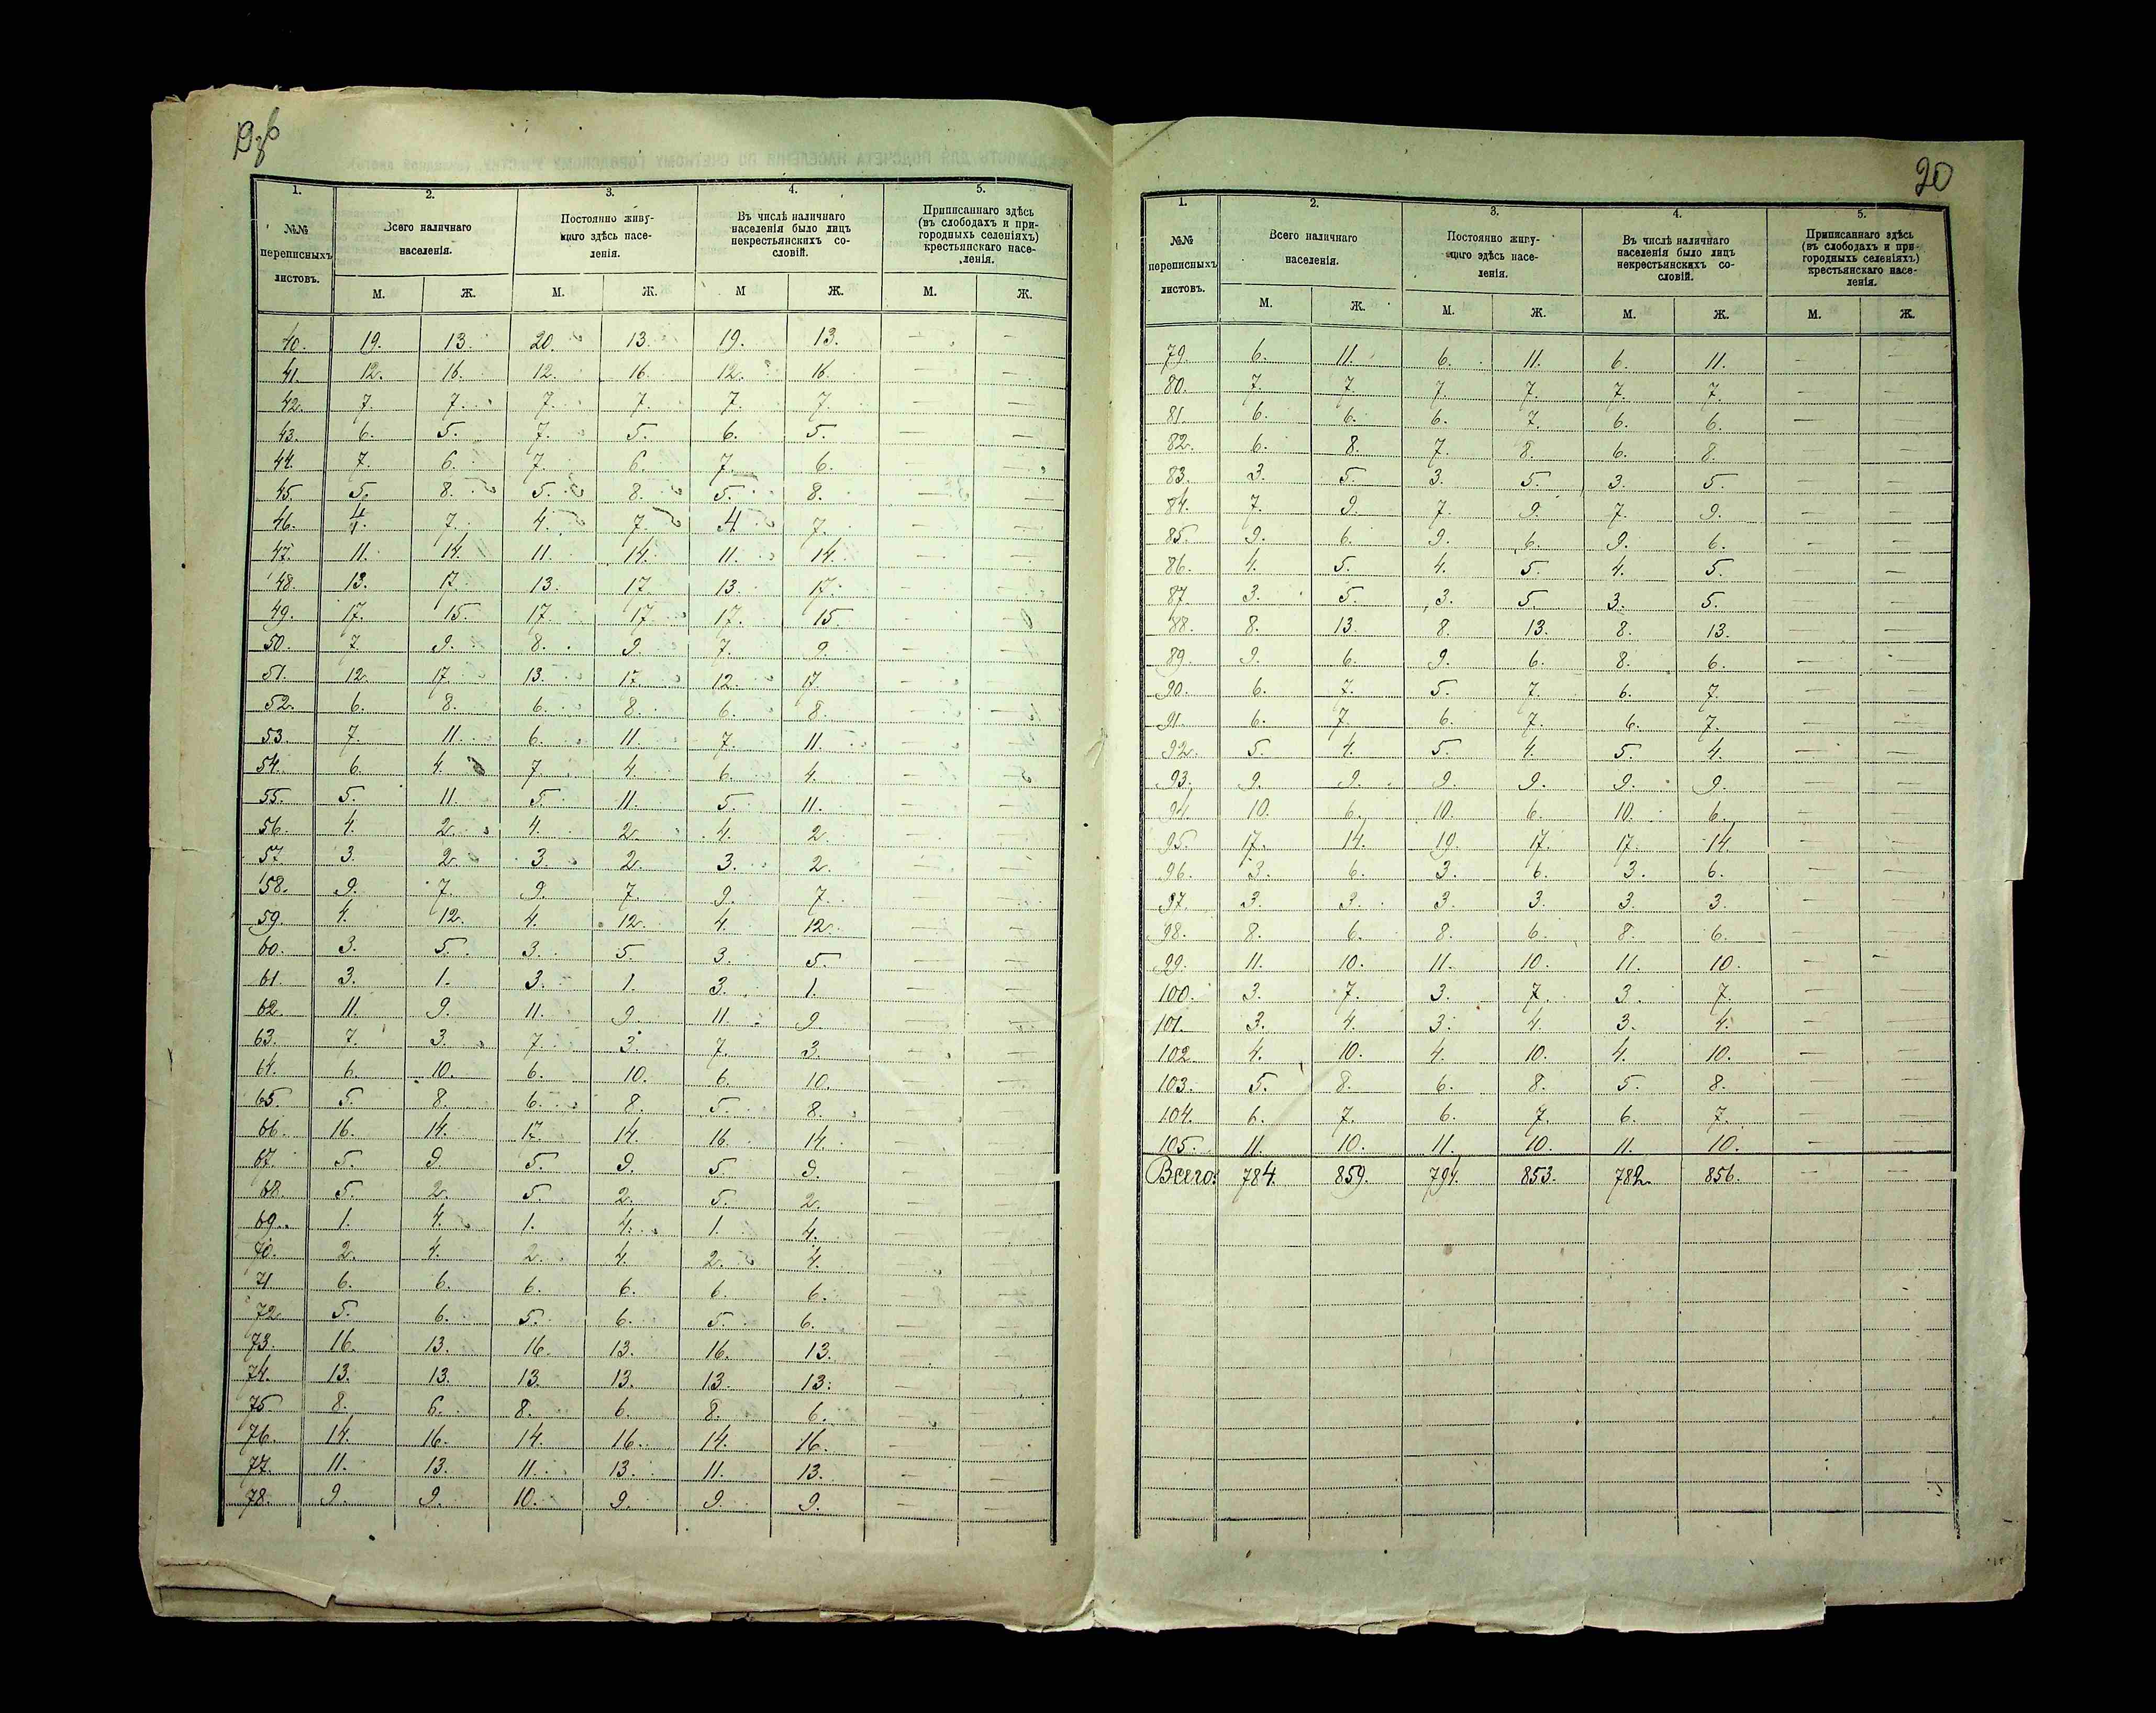 20
1. 2. 3. 4. 5.
№№ переписныхъ листовъ.
Всего наличнаго населенія.
Постоянно живущаго здѣсь населенія.
Въ числѣ наличнаго населенія было лицъ некрестьянскихъ сословій.
Приписаннаго здѣсь (въ слободахъ и пригородныхъ селеніяхъ) крестьянскаго населенія.
М. Ж. М. Ж. М Ж. М. Ж.
40. 19. 13. 20. 13. 19. 13. — —
41. 12. 16. 12. 16. 12. 16. — —
42. 7. 7. 7. 7. 7. 7 — —
43. 6. 5. 7. 5. 6. 5. — —
44. 7. 6. 7. 6. 7. 6. — —
45. 5. 8. 5. 8. 5. 8. — —
46. 4. 7. 4. 7. 4 7. — —
47. 11. 14. 11. 14. 11. 14. — —
48. 13. 17. 13. 17. 13. 17. — —
49. 17. 15. 17. 17. 17. 15 — —
50. 7. 9. 8. 9. 7. 9. — —
51. 12. 17. 13. 17. 12. 17. — —
52. 6. 8. 6. 8. 6. 8. — —
53. 7. 11. 6. 11. 7. 11. — —
54. 6. 4. 7 4. 6. 4. — —
55. 5. 11. 5. 11. 5. 11. — —
56. 4. 2. 4. 2. 4. 2. — —
57. 3. 2. 3. 2. 3. 2. — —
58. 9. 7. 9. 7. 9. 7. — —
59. 4. 12. 4. 12. 4. 12. — —
60. 3. 5. 3. 5. 3. 5. — —
61. 3. 1. 3. 1. 3. 1. — —
62. 11. 9. 11. 9. 11. 9. — —
63. 7. 3. 7. 3. 7. 3. — —
64. 6. 10. 6. 10. 6. 10. — —
65. 5. 8. 6. 8. 5. 8. — —
66. 16. 14. 17. 14. 16. 14. — —
67. 5. 9. 5. 9. 5. 9. — —
68. 5. 2. 5 2. 5. 2. — —
69. 1. 4. 1. 4. 1. 4. — —
70. 2. 4. 2. 4. 2. 4. — —
71 6. 6. 6. 6. 6. 6. — —
72 5. 6. 5. 6. 5. 6. — —
73. 16. 13. 16. 13. 16. 13. — —
74. 13. 13. 13. 13. 13. 13. — —
75 8. 6. 8. 6. 8. 6. — —
76. 14. 16. 14. 16. 14. 16. — —
77. 11. 13. 11. 13. 11. 13. — —
78. 9. 9. 10. 9. 9. 9. — —
1. 2. 3. 4. 5.
№№ переписныхъ листовъ.
Всего наличнаго населенія.
Постоянно живущаго здѣсь населенія.
Въ числѣ наличнаго населенія было лицъ некрестьянскихъ сословій.
Приписаннаго здѣсь (въ слободахъ и пригородныхъ селеніяхъ) крестьянскаго населенія.
М. Ж. М. Ж. М. Ж. М. Ж.
79. 6. 11. 6. 11. 6. 11. — —
80. 7. 7. 7. 7. 7. 7. — —
81. 6. 6. 6. 7. 6. 6. — —
82. 6. 8. 7. 8. 6. 8. — —
83. 3. 5. 3. 5. 3. 5. — —
84. 7. 9. 7. 9. 7. 9. — —
85. 9. 6. 9. 6. 9. 6. — —
86. 4. 5. 4. 5. 4. 5. — —
87. 3. 5. 3. 5. 3. 5. — —
88. 8. 13. 8. 13. 8. 13. — —
89. 9. 6. 9. 6. 8. 6. — —
90. 6. 7. 5. 7. 6. 7. — —
91 6. 7. 6. 7. 6. 7. — —
92. 5. 4. 5. 4. 5. 4. — —
93. 9. 9. 9. 9. 9. 9. — —
94 10. 6. 10. 6. 10. 6. — —
95. 17. 14. 19. 17. 17. 14 — —
96. 3. 6. 3. 6. 3. 6. — —
97. 3. 3. 3. 3. 3. 3. — —
98. 8. 6. 8. 6. 8. 6. — —
99. 11. 10. 11. 10. 11. 10. — —
100. 3. 7. 3. 7. 3. 7. — —
101. 3. 4. 3. 4. 3. 4. — —
102. 4. 10. 4. 10. 4. 10. — —
103. 5. 8. 6. 8. 5. 8. — —
104. 6. 7. 6. 7. 6. 7. — —
105. 11. 10. 11. 10. 11. 10. — —
Всего: 784. 859. 794. 853. 782. 856. — —